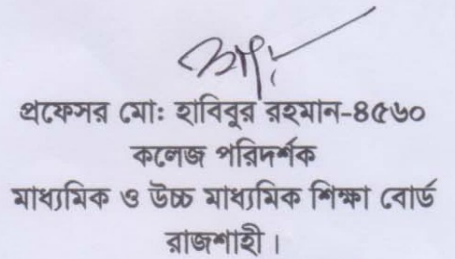 প্রফেসর মোঃ হাবিবুর রহমান-৪৫৬০
কলেজ পরিদর্শক
মাধ্যমিক ও উচ্চ মাধ্যমিক শিক্ষা বোর্ড
রাজশাহী।